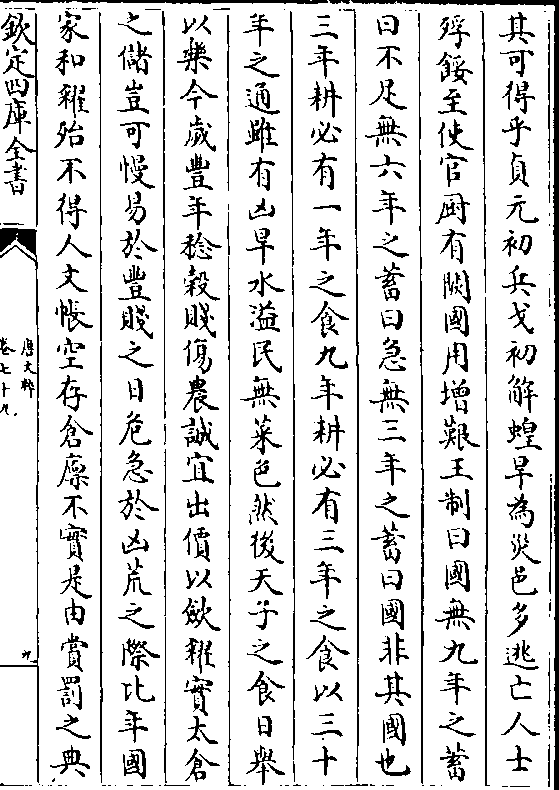 其可得乎貞元初兵戈初解蝗旱為災邑多逃亡人士
殍餒至使官厨有闕國用增艱王制曰國無九年之蓄
曰不足無六年之蓄曰急無三年之蓄曰國非其國也
三年耕必有一年之食九年耕必有三年之食以三十
年之通雖有凶旱水溢民無菜色然後天子之食日舉
以樂今歲豐年稔穀賤傷農誠宜出價以斂糴實太倉
之儲豈可慢易於豐賤之日危急於凶荒之際比年國
家和糴殆不得人文帳空存倉廪不實是由賞罰之典
欽定四庫全書
唐文粹
卷七十九
九